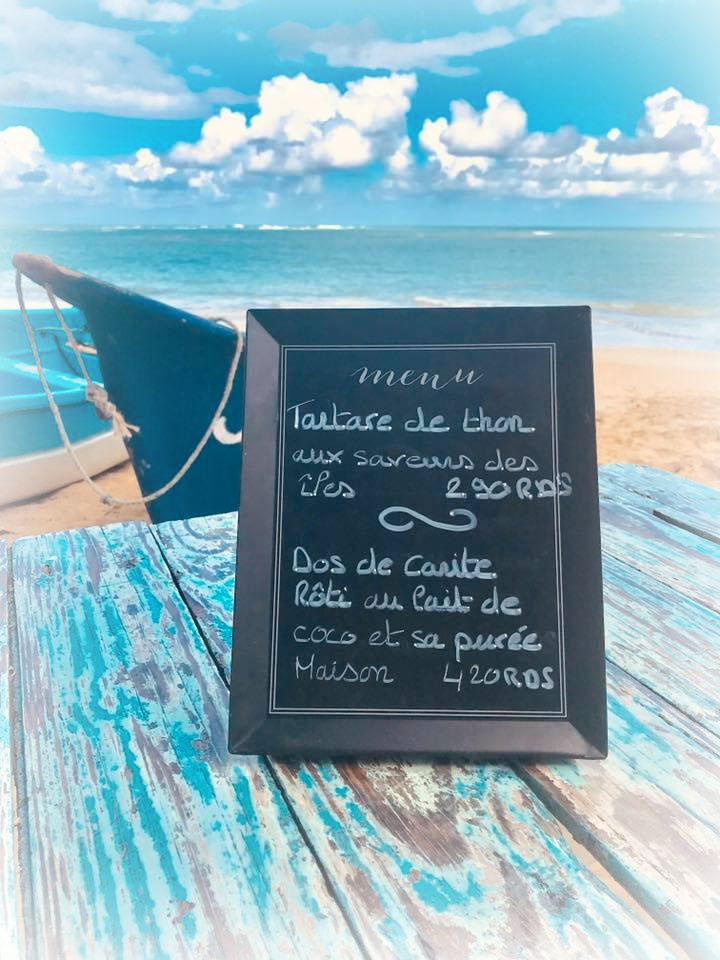 menu
Tartare de thon
aux saveurs des
îles 290RD$
Dos de Carite
Rôti au lait de
coco et sa purée
Maison 420RD$